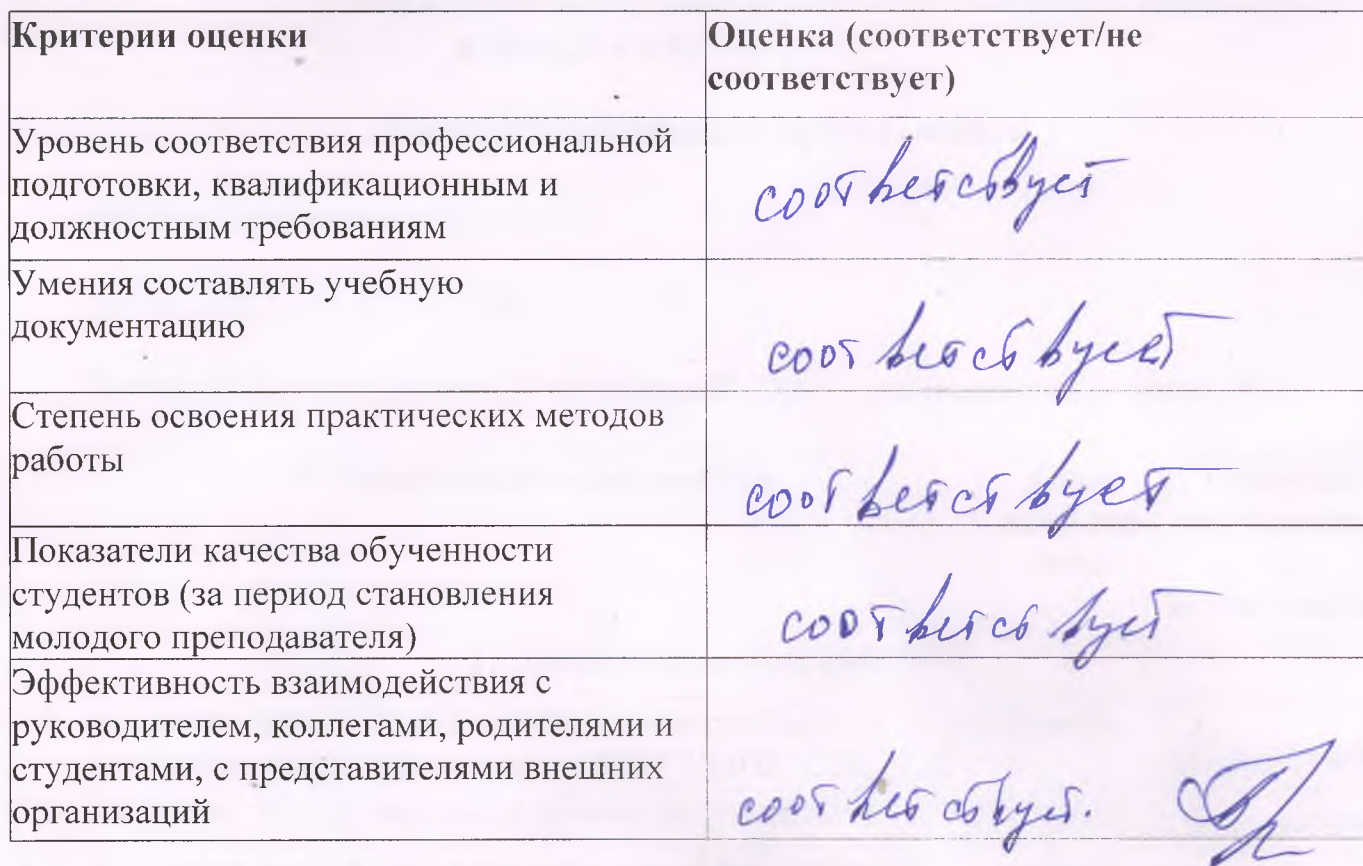 Критерии оценки
Оценка (соответствует/не
соответствует)
Уровень соответствия профессиональной
подготовки, квалификационным и
должностным требованиям
соответствует
Умения составлять учебную
документацию
соответствует
Степень освоения практических методов
работы
соответствует
Показатели качества обученности
студентов (за период становления
молодого преподавателя)
соответствует
Эффективность взаимодействия с
руководителем, коллегами, родителями и
студентами, с представителями внешних
организаций
соответствует.